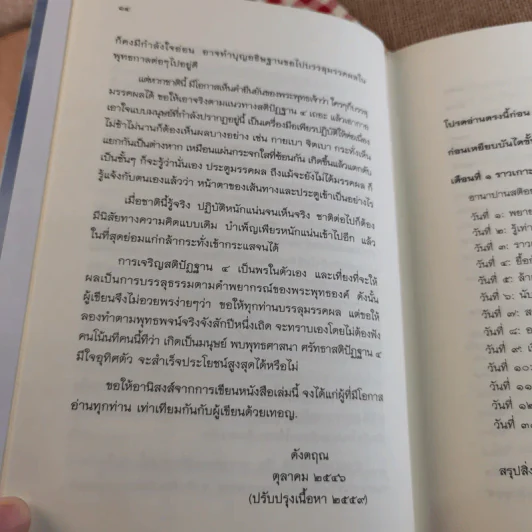 ๑๔
ก็คงมีกำลังใจอ่อน อาจทำบุญอธิษฐานขอไปบรรลุมรรคผลใน
พุทธกาลต่อๆไปอยู่ดี
แต่หากชาตินี้ มีโอกาสเห็นคำยืนยันของพระพุทธเจ้าว่า ใครๆก็บรรลุ
มรรคผลได้ ขอให้เอาจริงตามแนวทางสติปัฏฐาน ๔ เถอะ แล้วเอากาย
เอาใจแบบมนุษย์ที่กำลังปรากฏอยู่นี้ เป็นเครื่องมือเพียรปฏิบัติให้ต่อเนื่อง
ไม่ช้าไม่นานก็ต้องเห็นผลบางอย่าง เช่น กายเบา จิตเบา กระทั่งเห็น
แยกกันเป็นต่างหาก เหมือนแผ่นกระจกใสที่ซ้อนกัน เกิดขึ้นแล้วแตกดับ
เป็นชั้นๆ ก็จะรู้ว่านั่นเอง ประตูมรรคผล ถึงแม้จะยังไม่ได้มรรคผล ก็
รู้แจ้งกับตนเองแล้วว่า หน้าตาของเส้นทางและประตูเข้าเป็นอย่างไร
เมื่อชาตินี้รู้จริง ปฏิบัติหนักแน่นจนเห็นจริง ชาติต่อไปก็ต้อง
มีนิสัยทางความคิดแบบเดิม บำเพ็ญเพียรหนักแน่นเข้าไปอีก แล้ว
ในที่สุดย่อมแก่กล้ากระทั่งเข้ากระแสจนได้
การเจริญสติปัฏฐาน ๔ เป็นพรในตัวเอง และเที่ยงที่จะให้
ผลเป็นการบรรลุธรรมตามคำพยากรณ์ของพระพุทธองค์ ดังนั้น
ผู้เขียนจึงไม่อวยพรง่ายๆว่า ขอให้ทุกท่านบรรลุมรรคผล แต่ขอให้
ลองทำตามพุทธพจน์จริงจังสักปีหนึ่งเถิด จะทราบเองโดยไม่ต้องฟัง
คนโน้นทีคนนี้ทีว่า เกิดเป็นมนุษย์ พบพุทธศาสนา ศรัทธาสติปัฏฐาน ๔
มีใจอุทิศตัว จะสำเร็จประโยชน์สูงสุดได้หรือไม่
ขอให้อานิสงส์จากการเขียนหนังสือเล่มนี้ จงได้แก่ผู้ที่มีโอกาส
อ่านทุกท่าน เท่าเทียมกันกับผู้เขียนด้วยเทอญ.
ดังตฤณ
ตุลาคม ๒๕๔๖
(ปรับปรุงเนื้อหา ๒๕๕๙)
โปรดอ่านตรงนี้ก่อน
ก่อนเหยียบบันไดขั้
เดือนที่ ๑ ราวเกาะ
อานาปานสติอย
วันที่ ๑: พยา
วันที่ ๒: รู้เท่า
วันที่ ๓: ราว
วันที่ ๔: ยื้อยั
วันที่ ๕: ล้า
วันที่ ๖: นับ
วันที่ ๗: ส
วันที่ ๘: อ
วันที่ ๙: เ
วันที่ ๑๐:
วันที่ ๑๑
วันที่ ๒
วันที่ ๓
สรุปสิ่ง